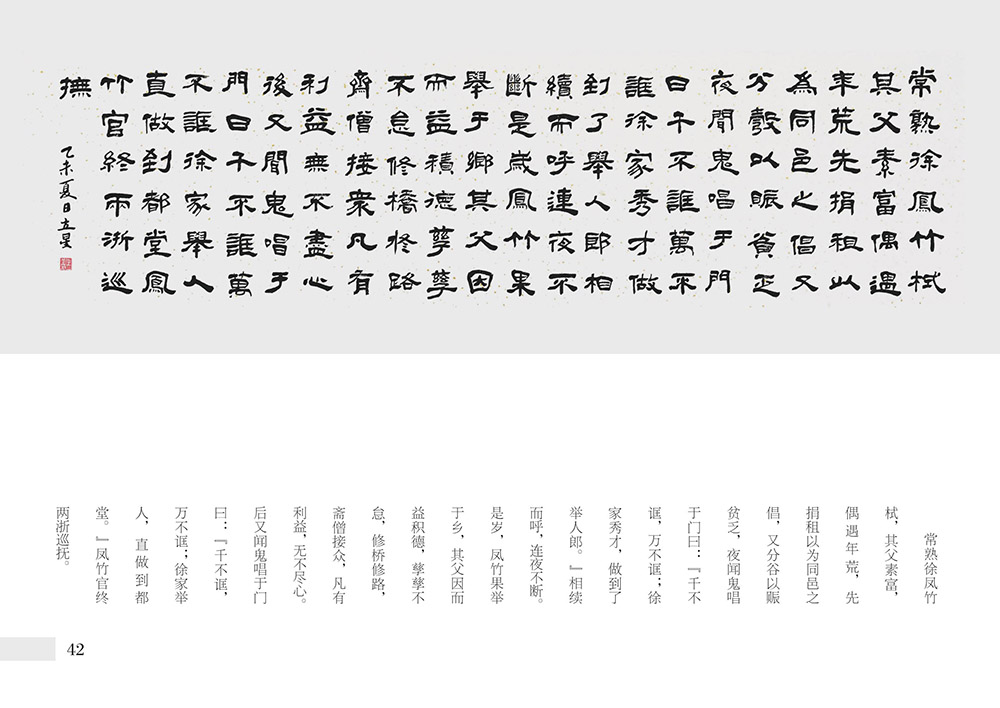 常熟徐鳳竹栻
其父素富偶遇
年荒先捐租以
為同邑之倡又
分穀以賑貧乏
夜聞鬼唱于門
曰千不誆萬不
誆徐家秀才做
到了舉人郎相
續而呼連夜不
斷是歲鳳竹果
舉于鄉其父因
而益積德孳孳
不怠修橋修路
齋僧接衆凡有
利益無不盡心
後又聞鬼唱于
門曰千不誆萬
不誆徐家舉人
直做到都堂鳳
竹官終兩浙巡
撫
乙未夏日立星
常熟徐凤竹
栻，其父素富，
偶遇年荒，先
捐租以为同邑之
倡，又分谷以赈
贫乏，夜闻鬼唱
于门曰：『千不
诓，万不诓；徐
家秀才，做到了
举人郎。』相续
而呼，连夜不断。
是岁，凤竹果举
于乡，其父因而
益积德，孳孳不
怠，修桥修路，
斋僧接众，凡有
利益，无不尽心。
后又闻鬼唱于门
曰：『千不诓，
万不诓；徐家举
人，直做到都
堂。』凤竹官终
两浙巡抚。
42